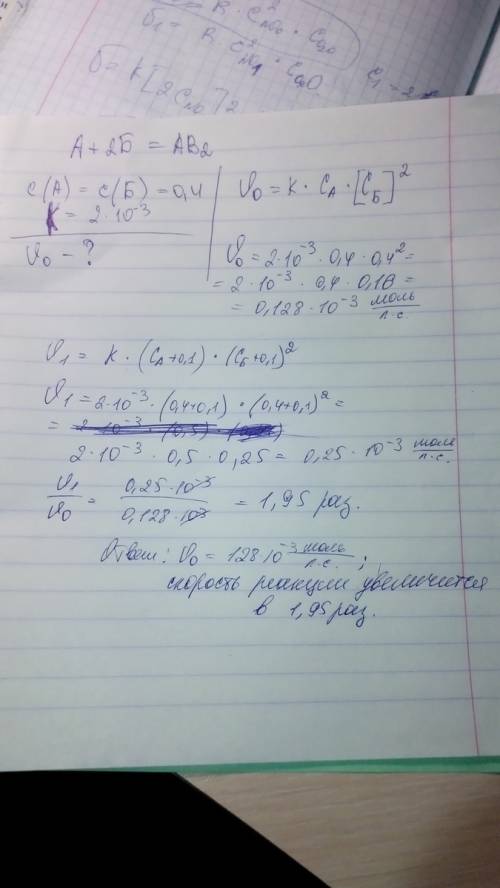 C²
A + 2Б = АВ₂
c(A) = c(Б) = 0,4
K = 2·10⁻³
ϑ₀ - ?
ϑ₀ = K · C_A · [C_Б]²
ϑ₀ = 2·10⁻³ · 0,4 · 0,4² =
= 2·10⁻³ · 0,4 · 0,16 =
= 0,128·10⁻³ моль/л.с.
ϑ₁ = K · (C_A+0,1) · (C_Б+0,1)²
ϑ₁ = 2·10⁻³ · (0,4+0,1) · (0,4+0,1)² =
=
2·10⁻³ · 0,5 · 0,25 = 0,25 · 10⁻³ моль/л.с.
ϑ₁/ϑ₀ = 0,25·10⁻³/0,128·10⁻³ = 1,95 раз.
Ответ: ϑ₀ = 128 10⁻³ моль/л.с. ;
скорость реакции увеличится
в 1,95 раз.